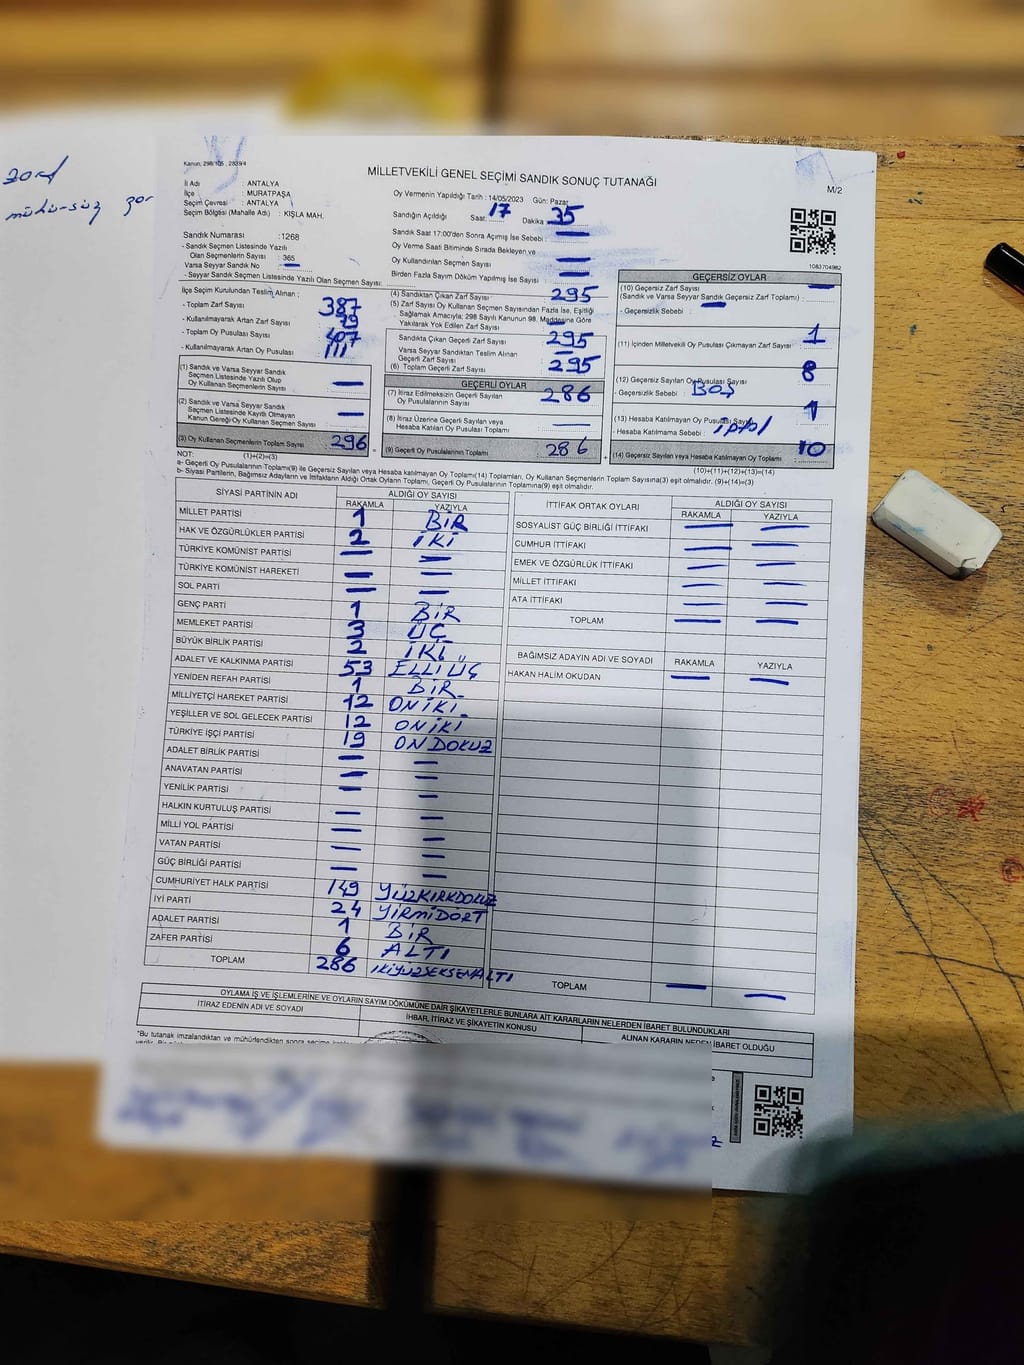 Kanun: 298/105 ; 2839/4
MİLLETVEKİLİ GENEL SEÇİMİ SANDIK SONUÇ TUTANAĞI
M/2
İl Adı : ANTALYA
İlçe : MURATPAŞA
Seçim Çevresi : ANTALYA
Seçim Bölgesi (Mahalle Adı) : KIŞLA MAH.
Oy Vermenin Yapıldığı Tarih : 14/05/2023 Gün: Pazar
Sandığın Açıldığı Saat: 17 Dakika 35
Sandık Saat 17:00'den Sonra Açımış İse Sebebi : —
Oy Verme Saati Bitiminde Sırada Bekleyen ve
Oy Kullandırılan Seçmen Sayısı : —
Birden Fazla Sayım Döküm Yapılmış İse Sayısı : —
Sandık Numarası :1268
- Sandık Seçmen Listesinde Yazılı
Olan Seçmenlerin Sayısı : 365
Varsa Seyyar Sandık No : —
- Seyyar Sandık Seçmen Listesinde Yazılı Olan Seçmen Sayısı:
1083704982
İlçe Seçim Kurulundan Teslim Alınan ;
- Toplam Zarf Sayısı : 387
- Kullanılmayarak Artan Zarf Sayısı
- Toplam Oy Pusulası Sayısı : 407
- Kullanılmayarak Artan Oy Pusulası : 111
(1) Sandık ve Varsa Seyyar Sandık
Seçmen Listesinde Yazılı Olup
Oy Kullanan Seçmenlerin Sayısı : —
(2) Sandık ve Varsa Seyyar Sandık
Seçmen Listesinde Kayıtlı Olmayan
Kanun Gereği Oy Kullanan Seçmen Sayısı : —
(3) Oy Kullanan Seçmenlerin Toplam Sayısı : 296
(4) Sandıktan Çıkan Zarf Sayısı : 295
(5) Zarf Sayısı Oy Kullanan Seçmen Sayısından Fazla İse, Eşitliği
Sağlamak Amacıyla; 298 Sayılı Kanunun 98. Maddesine Göre
Yakılarak Yok Edilen Zarf Sayısı : —
Sandıkta Çıkan Geçerli Zarf Sayısı : 295
Varsa Seyyar Sandıktan Teslim Alınan
Geçerli Zarf Sayısı : —
(6) Toplam Geçerli Zarf Sayısı : 295
GEÇERLİ OYLAR
(7) İtiraz Edilmeksizin Geçerli Sayılan
Oy Pusulalarının Sayısı : 286
(8) İtiraz Üzerine Geçerli Sayılan veya
Hesaba Katılan Oy Pusulası Toplamı : —
(9) Geçerli Oy Pusulalarının Toplamı : 286
GEÇERSİZ OYLAR
(10) Geçersiz Zarf Sayısı : —
(Sandık ve Varsa Seyyar Sandık Geçersiz Zarf Toplamı) :
- Geçersizlik Sebebi : —
(11) İçinden Milletvekili Oy Pusulası Çıkmayan Zarf Sayısı : 1
(12) Geçersiz Sayılan Oy Pusulası Sayısı : 8
- Geçersizlik Sebebi : BOŞ
(13) Hesaba Katılmayan Oy Pusulası Sayısı : 1
- Hesaba Katılmama Sebebi : iptal
(14) Geçersiz Sayılan veya Hesaba Katılmayan Oy Toplamı : 10
NOT: (1)+(2)=(3) (10)+(11)+(12)+(13)=(14)
a- Geçerli Oy Pusulalarının Toplamı(9) ile Geçersiz Sayılan veya Hesaba katılmayan Oy Toplamı(14) Toplamları, Oy Kullanan Seçmenlerin Toplam Sayısına(3) eşit olmalıdır. (9)+(14)=(3)
b- Siyasi Partilerin, Bağımsız Adayların ve İttifakların Aldığı Ortak Oyların Toplamı, Geçerli Oy Pusulalarının Toplamına(9) eşit olmalıdır.
SİYASİ PARTİNİN ADI ALDIĞI OY SAYISI
RAKAMLA YAZIYLA
MİLLET PARTİSİ 1 BİR
HAK VE ÖZGÜRLÜKLER PARTİSİ 2 İKİ
TÜRKİYE KOMÜNİST PARTİSİ — —
TÜRKİYE KOMÜNİST HAREKETİ — —
SOL PARTİ — —
GENÇ PARTİ 1 BİR
MEMLEKET PARTİSİ 3 ÜÇ
BÜYÜK BİRLİK PARTİSİ 2 İKİ
ADALET VE KALKINMA PARTİSİ 53 ELLİ ÜÇ
YENİDEN REFAH PARTİSİ 1 BİR
MİLLİYETÇİ HAREKET PARTİSİ 12 ON İKİ
YEŞİLLER VE SOL GELECEK PARTİSİ 12 ON İKİ
TÜRKİYE İŞÇİ PARTİSİ 19 ON DOKUZ
ADALET BİRLİK PARTİSİ — —
ANAVATAN PARTİSİ — —
YENİLİK PARTİSİ — —
HALKIN KURTULUŞ PARTİSİ — —
MİLLİ YOL PARTİSİ — —
VATAN PARTİSİ — —
GÜÇ BİRLİĞİ PARTİSİ — —
CUMHURİYET HALK PARTİSİ 149 YÜZKIRKDOKUZ
İYİ PARTİ 24 YİRMİDÖRT
ADALET PARTİSİ 1 BİR
ZAFER PARTİSİ 6 ALTI
TOPLAM 286 İKİYÜZSEKSENALTI
İTTİFAK ORTAK OYLARI ALDIĞI OY SAYISI
RAKAMLA YAZIYLA
SOSYALİST GÜÇ BİRLİĞİ İTTİFAKI — —
CUMHUR İTTİFAKI — —
EMEK VE ÖZGÜRLÜK İTTİFAKI — —
MİLLET İTTİFAKI — —
ATA İTTİFAKI — —
TOPLAM — —
BAĞIMSIZ ADAYIN ADI VE SOYADI RAKAMLA YAZIYLA
HAKAN HALİM OKUDAN — —
TOPLAM — —
OYLAMA İŞ VE İŞLEMLERİNE VE OYLARIN SAYIM DÖKÜMÜNE DAİR ŞİKAYETLERLE BUNLARA AİT KARARLARIN NELERDEN İBARET BULUNDUKLARI
İTİRAZ EDENİN ADI VE SOYADI İHBAR, İTİRAZ VE ŞİKAYETİN KONUSU ALINAN KARARIN NEDEN İBARET OLDUĞU
"Bu tutanak imzalandıktan ve mühürlendikten sonra